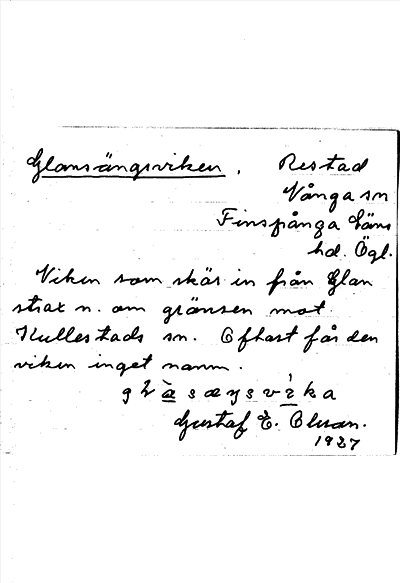 Glansängsviken, Restad
Vånga sn
Finspånga läns
hd. Ögl.
Viken som skär in från Glan
strax n. om gränsen mot
Kullestads sn. Oftast får den
viken inget namn.
Gustaf E. Olsson.
1927